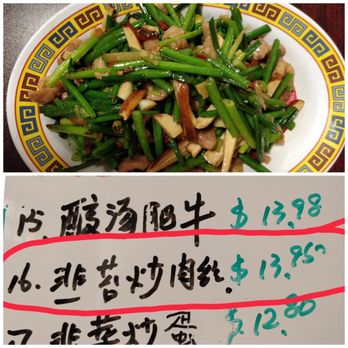 15. 酸汤肥牛 $ 13.98
16. 韭苔炒肉丝 $ 13.95
17. 韭菜炒蛋 $ 12.80